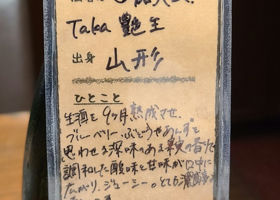 Taka 艶生
出身 山形
ひとこと
生酒を9ヶ月熟成させ、
ブルーベリー、ぶどうやあんずを
思わせる深味のある果実の香りで
調和した酸味と甘味が口中に
広がり、ジューシー。とても濃醇